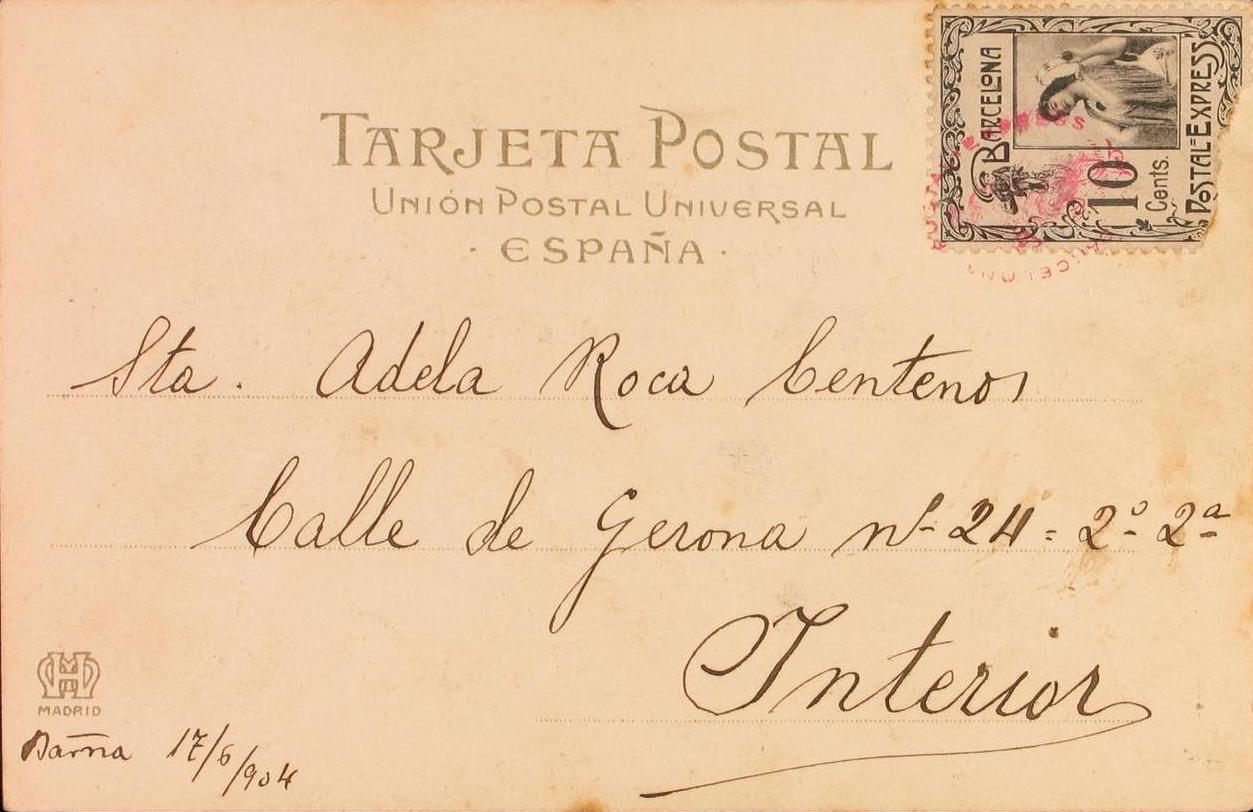 TARJETA POSTAL
UNIÓN POSTAL UNIVERSAL
· ESPAÑA ·
BARCELONA
10
Cents.
POSTAL EXPRESS
BARCELONA
Sta. Adela Roca Centenos
Calle de Gerona nº 24 = 2º 2ª
Interior
HM
MADRID
Barña 17/6/904